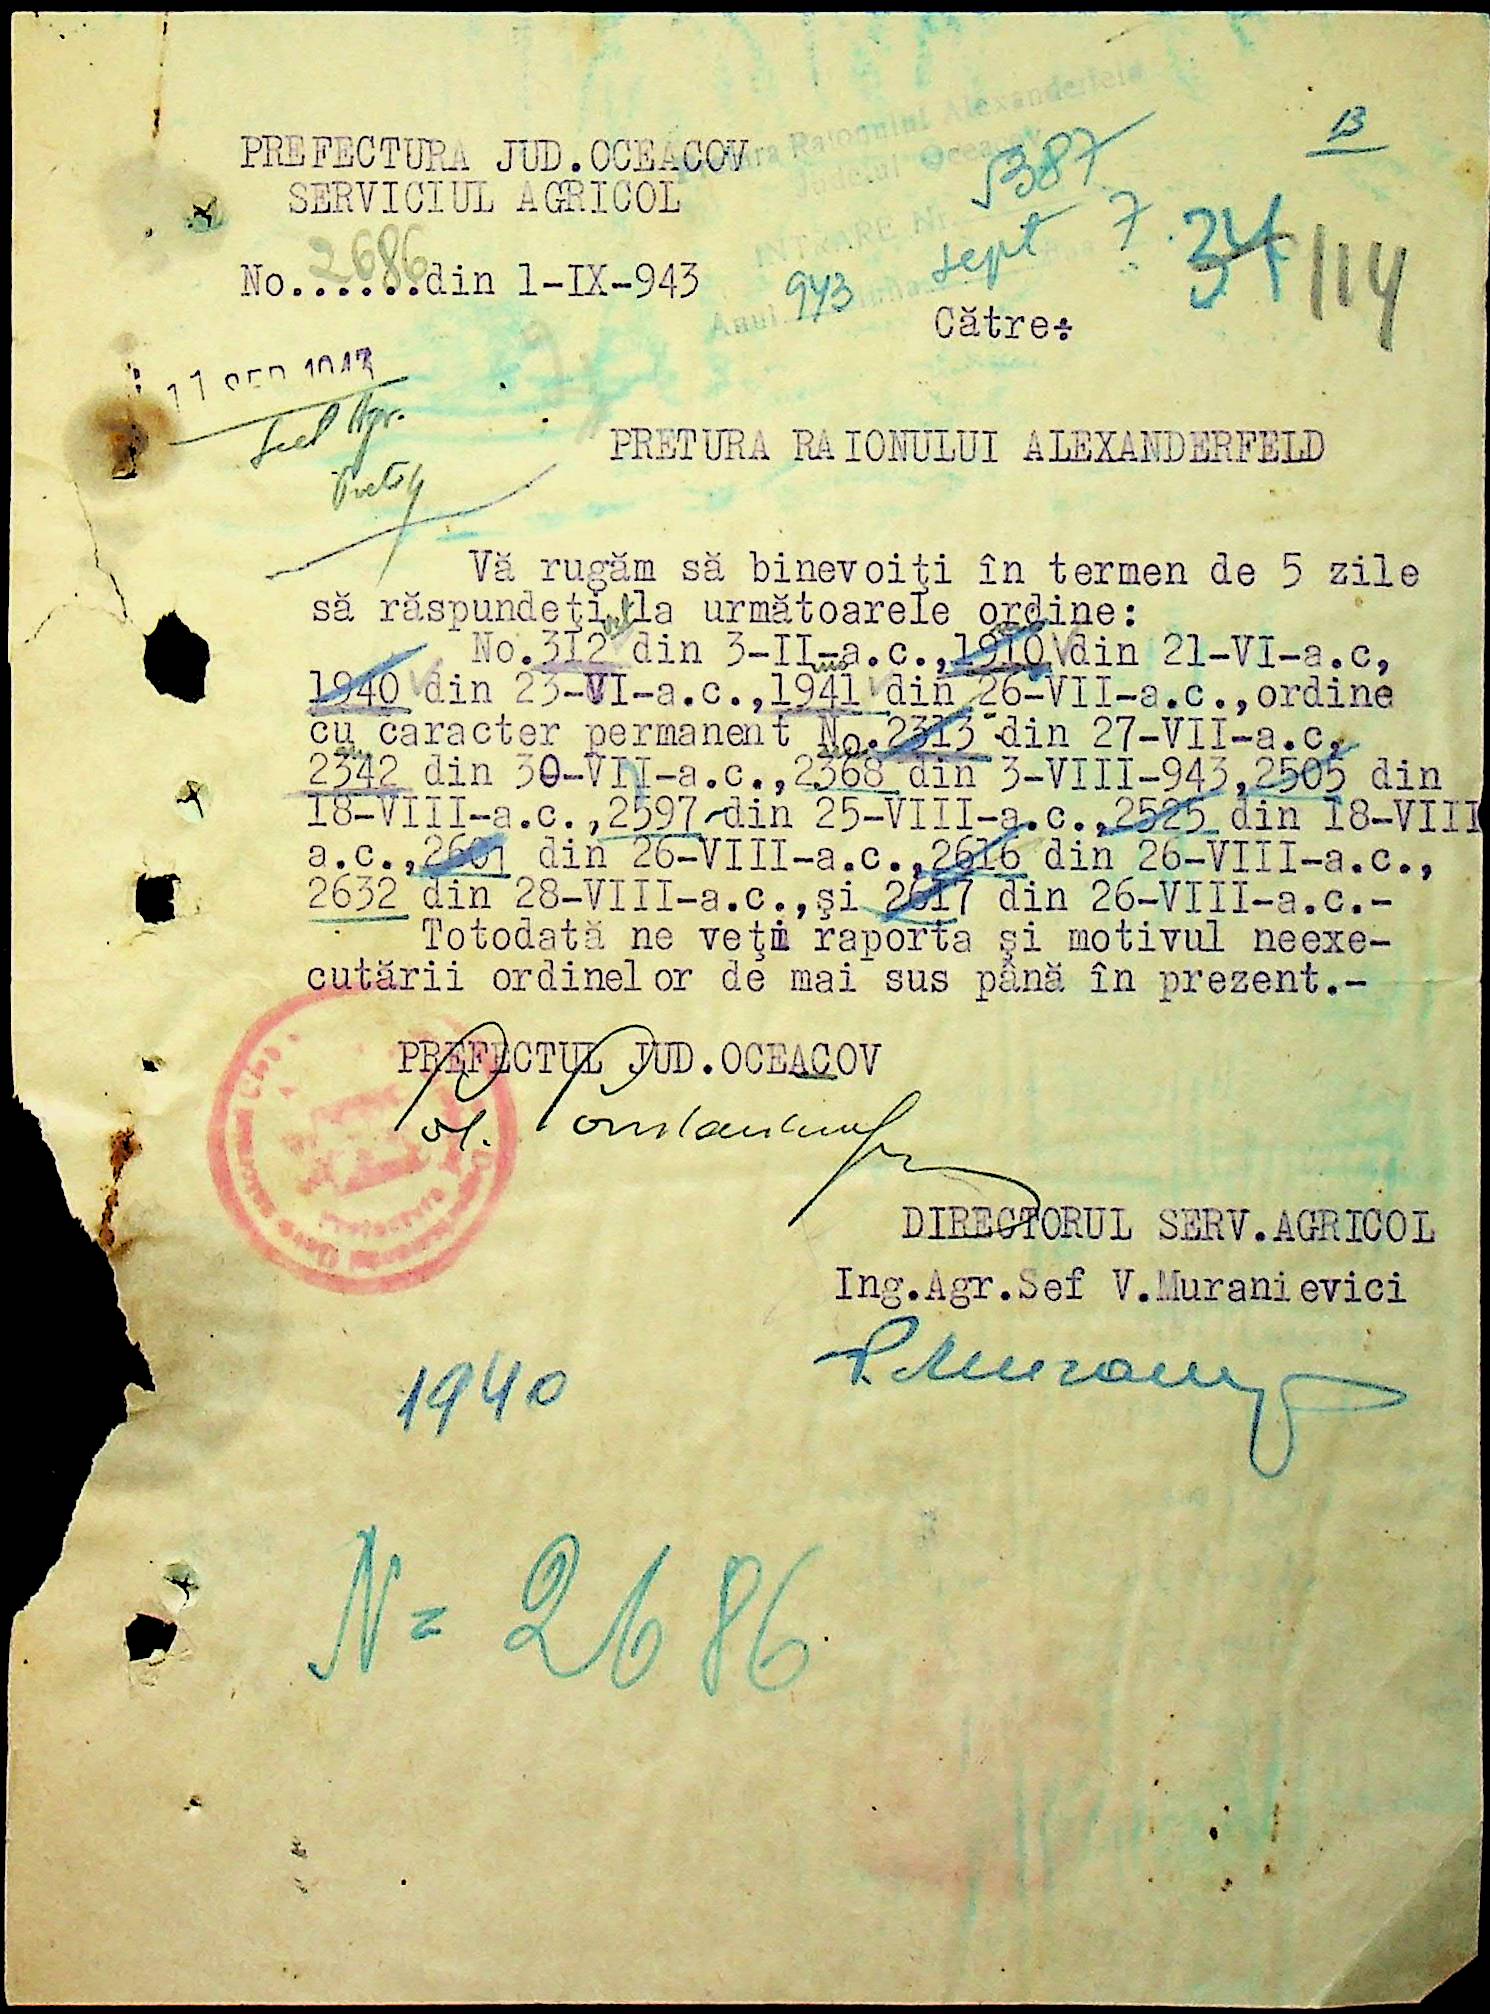 13
PREFECTURA JUD.OCEACOV
SERVICIUL AGRICOL
Raionului Alexanderfeld
Judeţul Oceacov
INTRARE Nr.
387
sept 7
943
34/114
No.2686 din 1-IX-943
Către:
11 SEP 1943
PRETURA RAIONULUI ALEXANDERFELD
Vă rugăm să binevoiţi în termen de 5 zile
să răspundeţi la următoarele ordine:
No.312 din 3-II-a.c.,1910 din 21-VI-a.c,
1940 din 23-VI-a.c.,1941 din 26-VII-a.c.,ordine
cu caracter permanent No.2313 din 27-VII-a.c,
2342 din 30-VII-a.c.,2368 din 3-VIII-943,2505 din
18-VIII-a.c.,2597 din 25-VIII-a.c.,2525 din 18-VIII
a.c.,2601 din 26-VIII-a.c.,2616 din 26-VIII-a.c.,
2632 din 28-VIII-a.c.,şi 2617 din 26-VIII-a.c.-
Totodată ne veţi raporta şi motivul neexe-
cutării ordinelor de mai sus până în prezent.-
PREFECTUL JUD.OCEACOV
DIRECTORUL SERV.AGRICOL
Ing.Agr.Sef V.Muranievici
1940
N= 2686